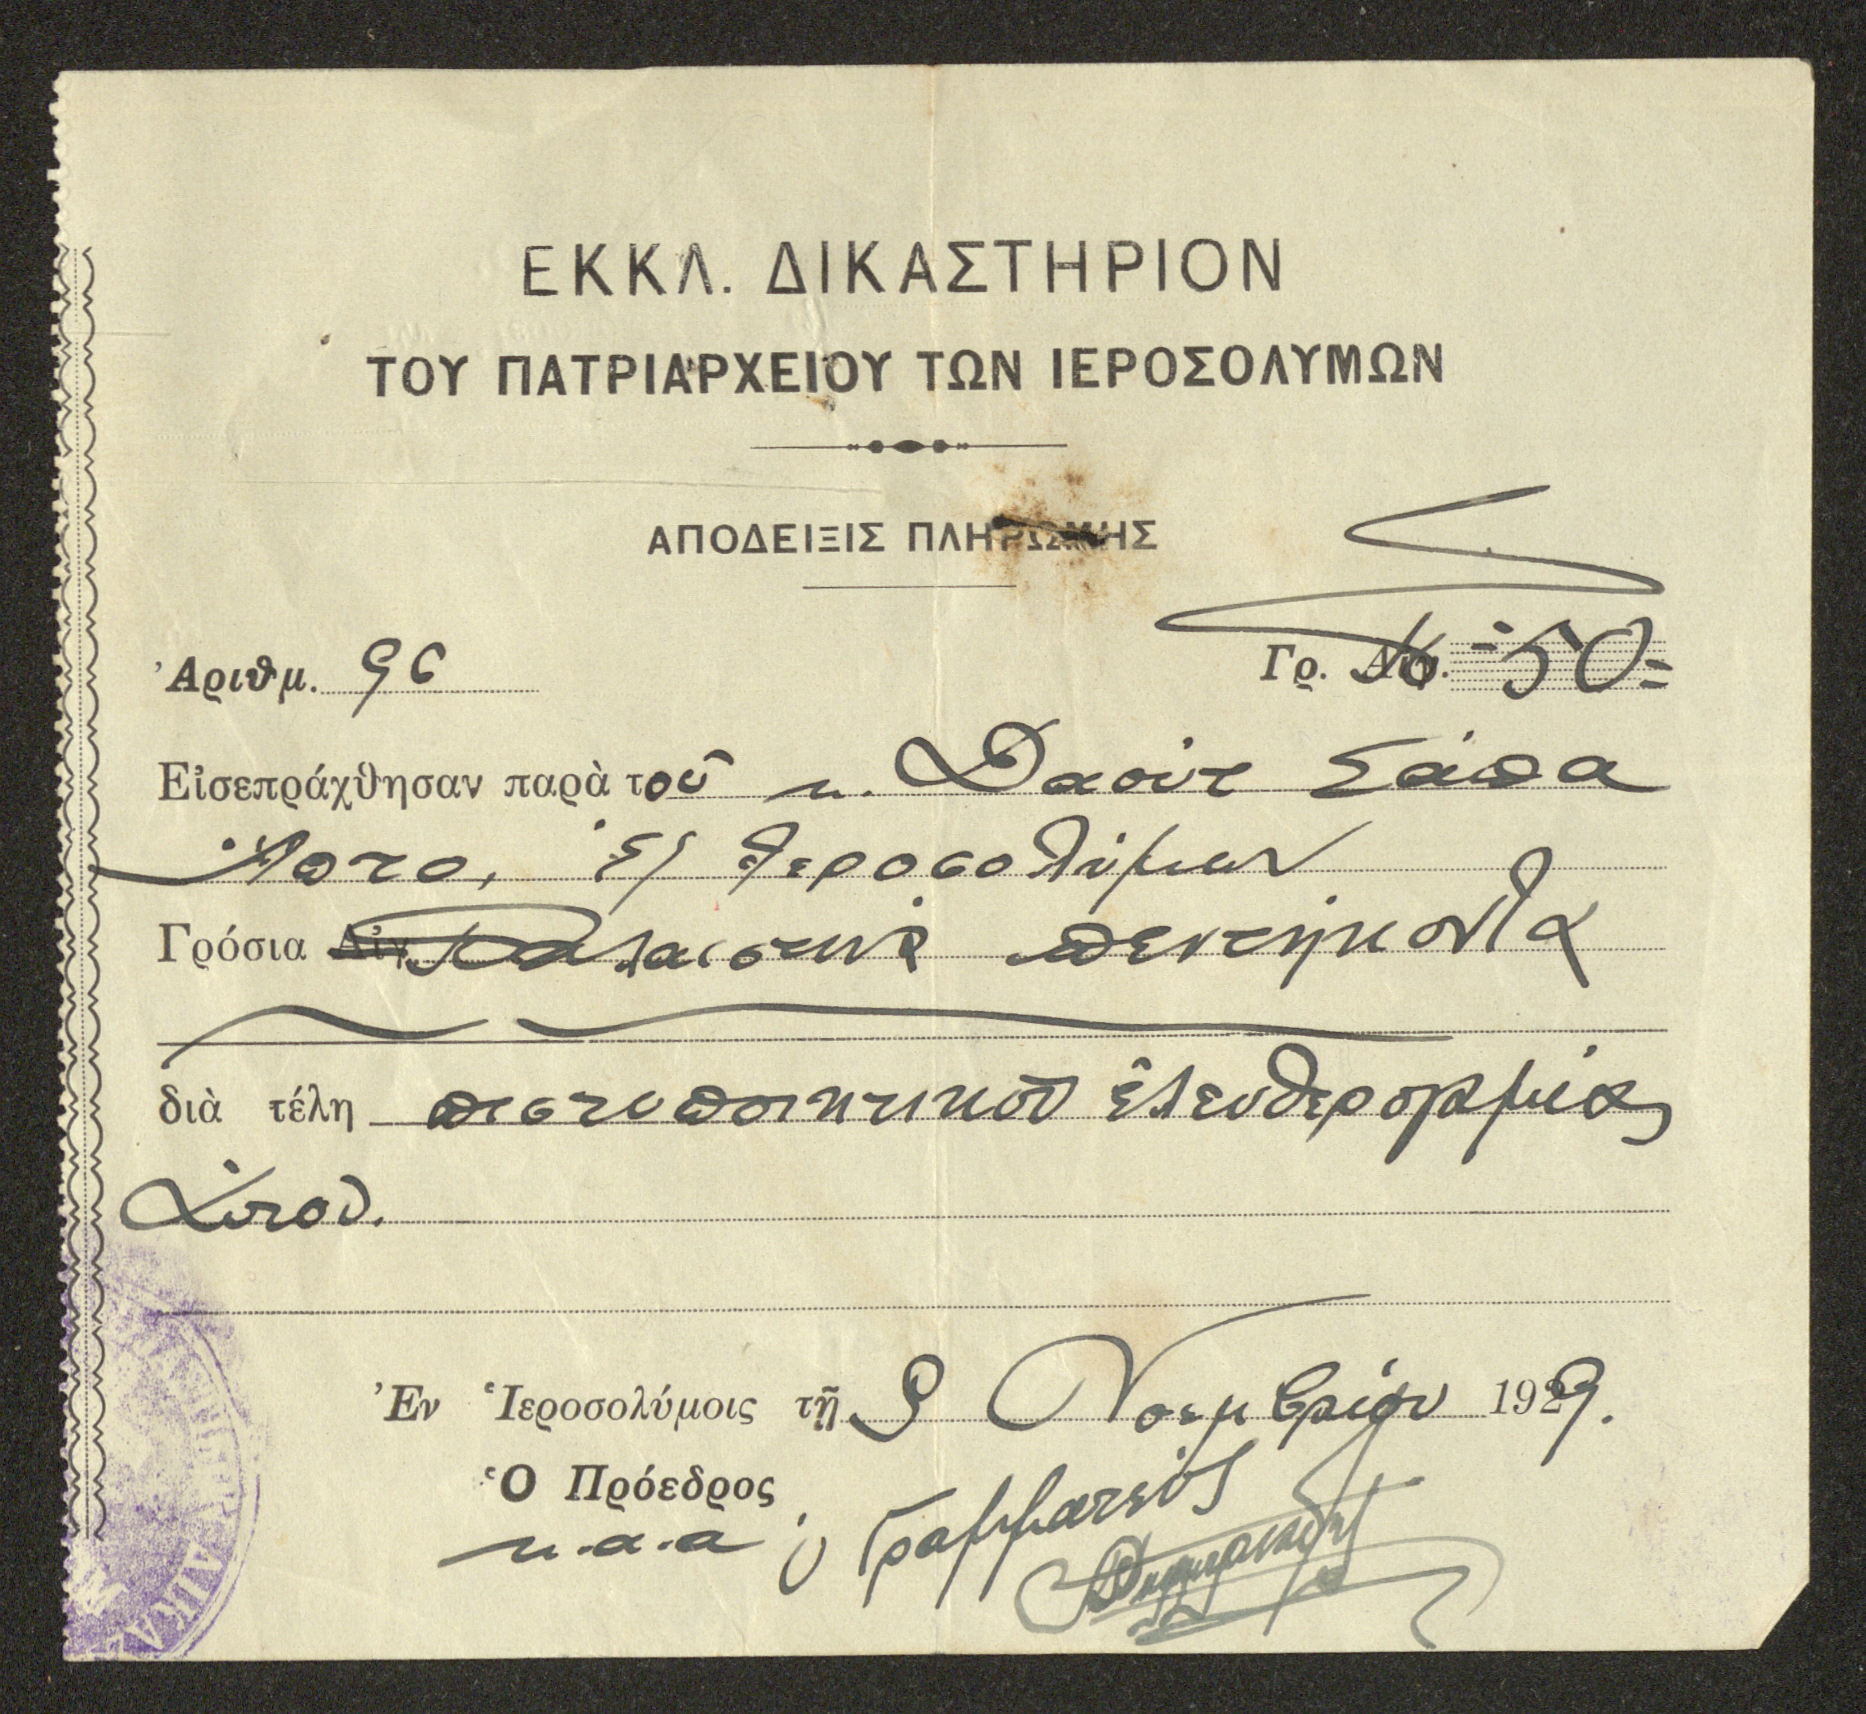 ΕΚΚΛ. ΔΙΚΑΣΤΗΡΙΟΝ
ΤΟΥ ΠΑΤΡΙΑΡΧΕΙΟΥ ΤΩΝ ΙΕΡΟΣΟΛΥΜΩΝ
ΑΠΟΔΕΙΞΙΣ ΠΛΗΡΩΜΗΣ
Ἀριθμ. 96 Γρ. -50=
Εἰσεπράχθησαν παρὰ τοῦ κ. Δαοὺτ Σάπα
ἐξ Ἱεροσολύμων
Γρόσια Παλαιστινὰ πεντήκοντα
διὰ τέλη πιστοποιητικοῦ ἐλευθερογαμίας
αὐτοῦ.
Ἐν Ἱεροσολύμοις τῇ 9 Νοεμβρίου 1929.
Ὁ Πρόεδρος
κ.α.α ὁ Γραμματεὺς